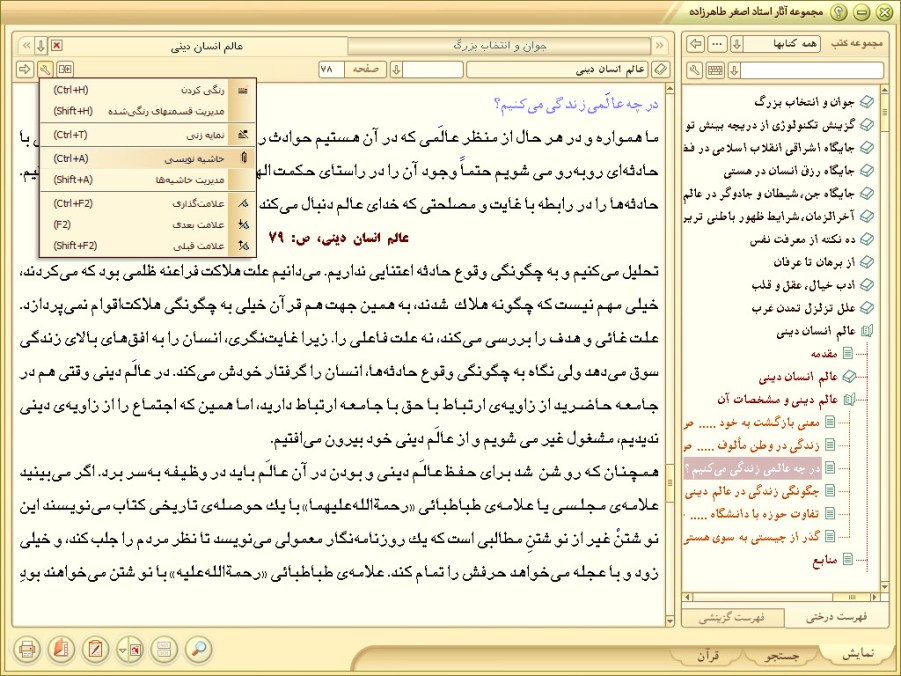 مجموعه آثار استاد اصغر طاهرزاده
مجموعه کتب
همه کتابها
...
جوان و انتخاب بزرگ
گزینش تکنولوژی از دریچه بینش تو
جایگاه اشراقی انقلاب اسلامی در فض
جایگاه رزق انسان در هستی
جایگاه جن، شیطان و جادوگر در عالم
آخرالزمان، شرایط ظهور باطنی ترین
ده نکته از معرفت نفس
از برهان تا عرفان
ادب خیال، عقل و قلب
علل تزلزل تمدن غرب
عالم انسان دینی
مقدمه
عالم انسان دینی
عالم دینی و مشخصات آن
معنی بازگشت به خود ..... ص
زندگی در وطن مألوف ..... ص
در چه عالمی زندگی می‌کنیم ؟
چگونگی زندگی در عالم دینی
تفاوت حوزه با دانشگاه .....
گذر از چیستی به سوی هستی
منابع
فهرست درختی
فهرست گزینشی
نمایش
جستجو
قرآن
جوان و انتخاب بزرگ
عالم انسان دینی
عالم انسان دینی
صفحه
۷۸
رنگی کردن (Ctrl+H)
مدیریت قسمتهای رنگی‌شده (Shift+H)
نمایه زنی (Ctrl+T)
حاشیه نویسی (Ctrl+A)
مدیریت حاشیه‌ها (Shift+A)
علامت‌گذاری (Ctrl+F2)
علامت بعدی (F2)
علامت قبلی (Shift+F2)
در چه عالَمی زندگی می‌کنیم؟
ما همواره و در هر حال از منظر عالَمی که در آن هستیم حوادث ر
با
حادثه‌ای روبه‌رو می شویم حتماً وجود آن را در راستای حکمت اله
یم.
حادثه‌ها را در رابطه با غایت و مصلحتی که خدای عالم دنبال می‌کند
عالم انسان دینی، ص: ۷۹
تحلیل می‌کنیم و به چگونگی وقوع حادثه اعتنایی نداریم. می‌دانیم علت هلاکت فراعنه ظلمی بود که می‌کردند،
خیلی مهم نیست که چگونه هلاك شدند، به همین جهت هم قرآن خیلی به چگونگی هلاکت‌اقوام نمی‌پردازد.
علت غائی و هدف را بررسی می‌کند، نه علت فاعلی را. زیرا غایت‌نگری، انسان را به افق‌های بالای زندگی
سوق می‌دهد ولی نگاه به چگونگی وقوع حادثه‌ها، انسان را گرفتار خودش می‌کند. در عالَم دینی وقتی هم در
جامعه حاضرید از زاویه‌ی ارتباط با حق با جامعه ارتباط دارید، اما همین که اجتماع را از زاویه‌ی دینی
ندیدیم، مشغول غیر می شویم و از عالَم دینی خود بیرون می‌افتیم.
همچنان که روشن شد برای حفظ عالَم دینی و بودن در آن عالَم باید در وظیفه به‌سر برد. اگر می‌بینید
علامه‌ی مجلسی یا علامه‌ی طباطبائی «رحمةالله‌علیهما» با یك حوصله‌ی تاریخی کتاب می‌نویسند این
نوشتنْ غیر از نوشتنِ مطالبی است که یك روزنامه‌نگار معمولی می‌نویسد تا نظر مردم را جلب کند، و خیلی
زود و با عجله می‌خواهد حرفش را تمام کند. علامه‌ی طباطبائی «رحمةالله‌علیه» با نوشتن می‌خواهند بودِ